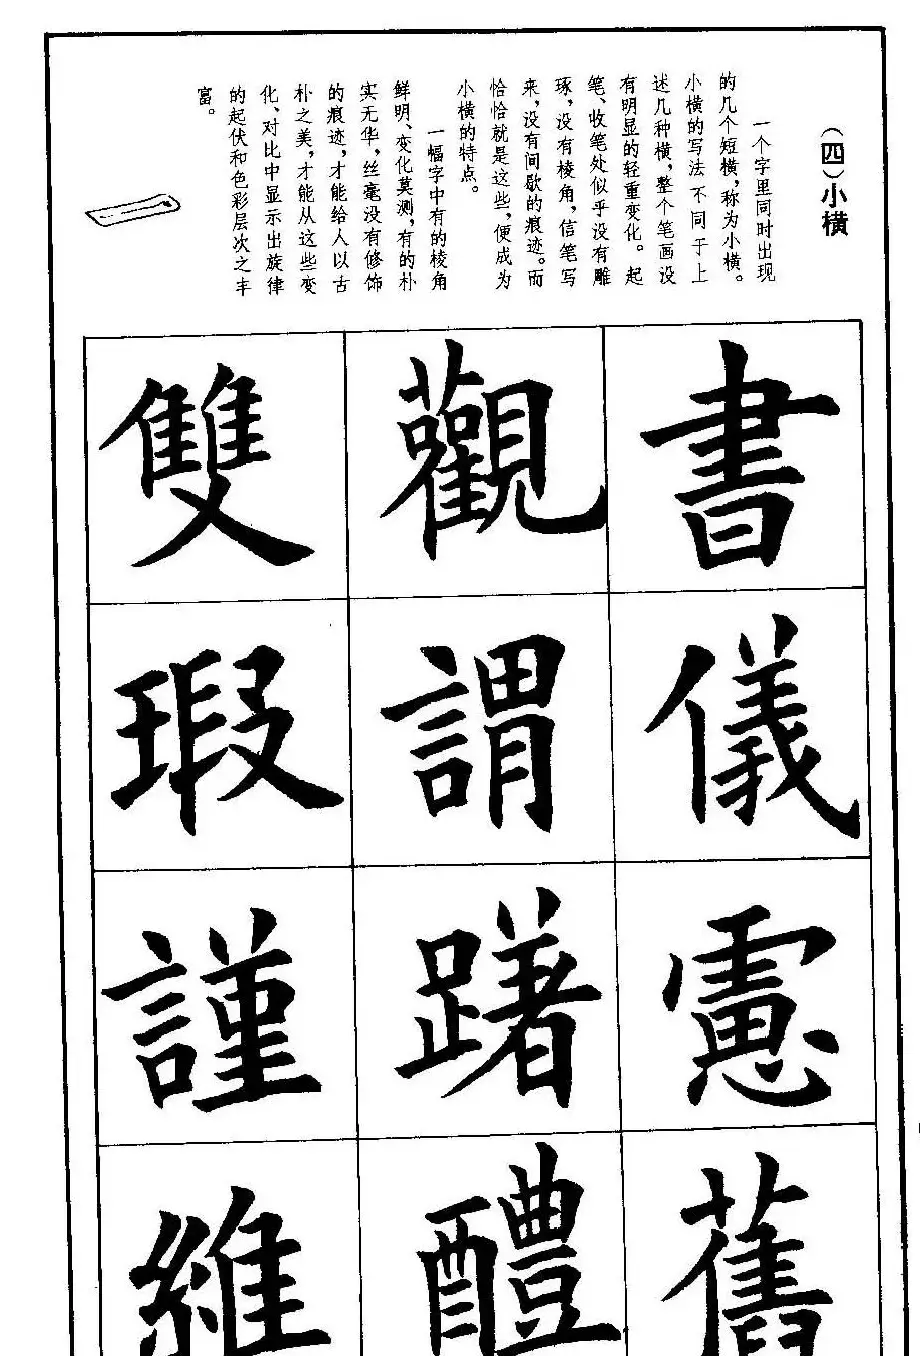 （四）小横
一个字里同时出现
的几个短横，称为小横。
小横的写法不同于上
述几种横，整个笔画没
有明显的轻重变化。起
笔、收笔处似乎没有雕
琢，没有棱角，信笔写
来，没有间歇的痕迹。而
恰恰就是这些，便成为
小横的特点。
一幅字中有的棱角
鲜明、变化莫测，有的朴
实无华，丝毫没有修饰
的痕迹，才能给人以古
朴之美，才能从这些变
化、对比中显示出旋律
的起伏和色彩层次之丰
富。
書儀憲舊
觀謂躇醴
雙瑕謹維